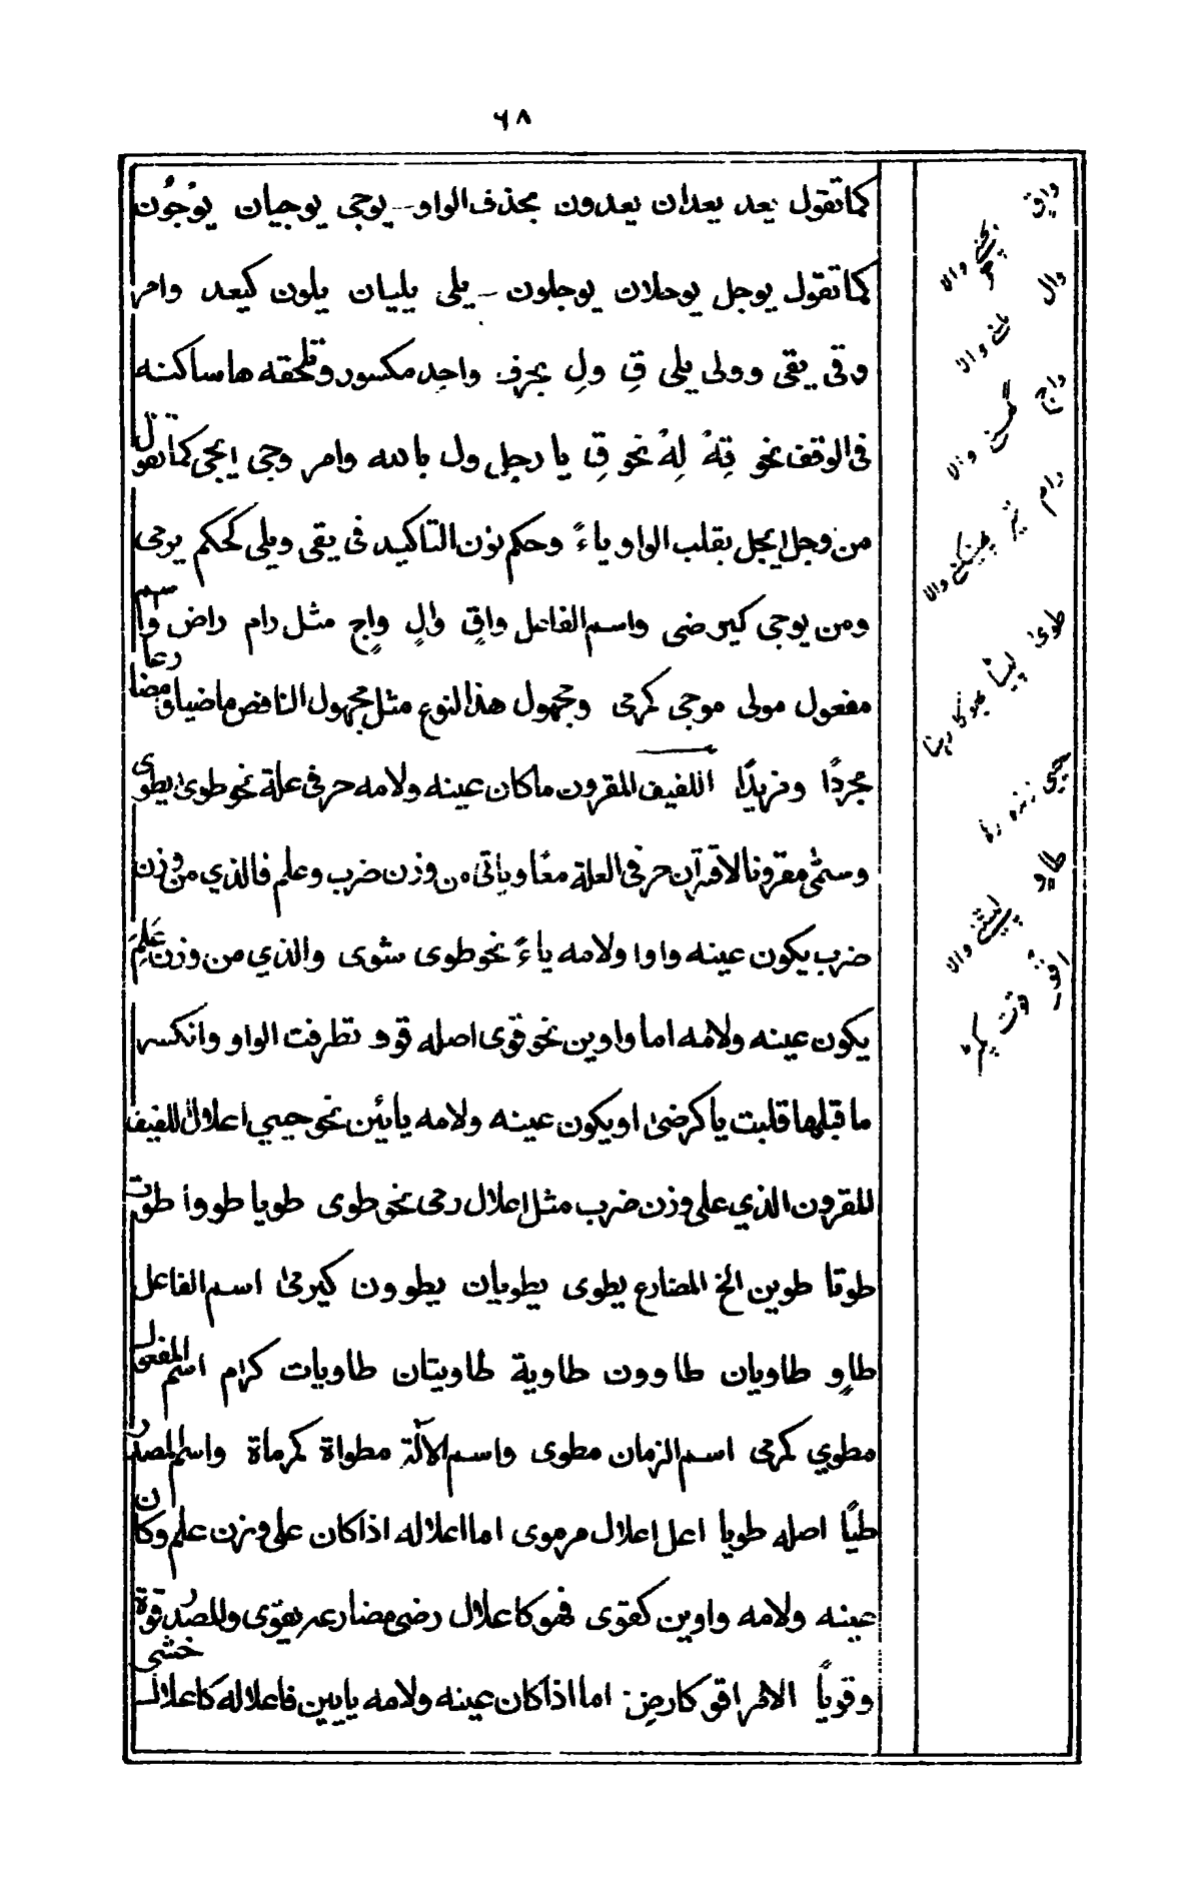 ٦٨
كما تقول يعد يعدان يعدون بحذف الواو - يوجى يوجيان يوجُون
كما تقول يوجل يوجلان يوجلون - يلى يليان يلون كيعد وامر
وقى يقى وولى يلى قِ ولِ بحرف واحد مكسور وقد تلحقه ها ساكنه
فى الوقف نحو قِهْ لِهْ نحو قِ يا رجل ول بالله وامر وجى ايجى كما تقول
من وجل ايجل بقلب الواو ياءً وحكم نون التاكيد فى يقى ويلى كحكم يرمى
ومن يوجى كيرضى واسم الفاعل واقٍ والٍ واجٍ مثل رام راض واسم
مفعول مولى موجى كمرمى ومجهول هذا النوع مثل مجهول الناقص ماضيا ومضارعا
مجردًا ومزيدًا اللفيف المقرون ما كان عينه ولامه حرفى علة نحو طوىٰ يطوى
وسمّى مقرونا لاقتران حرفى العلة معًا وياتى من وزن ضرب وعلم فالذي من وزن
ضرب يكون عينه واوا ولامه ياءً نحو طوى شوى والذي من وزن عَلِمَ
يكون عينه ولامه اما واوين نحو قوى اصله قوو تطرفت الواو وانكسر
ما قبلها قلبت يا كرضىٰ او يكون عينه ولامه يائين نحو حيي اعلال اللفيف
المقرون الذي على وزن ضرب مثل اعلال رمى نحو طوى طويا طووا طوت
طوتا طوين الخ المضارع يطوى يطويان يطوون كيرمىٰ اسم الفاعل
طاوٍ طاويان طاوون طاوية طاويتان طاويات كرام اسم المفعول
مطوي كمرمى اسم الزمان مطوى واسم الآلة مطواة كمرماة واسم المصدر
طيًّا اصله طويا اعل اعلال مرموى اما اعلاله اذا كان على وزن علم وكان
عينه ولامه واوين كقوى فهو كاعلال رضى مضارعه يقوى والمصدر قوة
وقوياً الامر اقو كارض اما اذا كان عينه ولامه يايين فاعلاله كاعلال خشى
واقٍ بچنے والا
وال والا
واج والا
رام تیر پھینکنے والا
طوىٰ لپیٹنا بھوکا رہنا
حيي زندہ رہنا
طاوٍ لپیٹنے والا
اقو قوت پکڑ